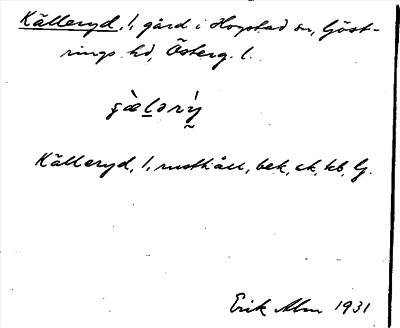 Källeryd, !, gård i Hogstad sn, Göst-
rings hd, Österg. l.
Källeryd, !, rusthåll, bek, ck, kb, G.
Erik Alm 1931